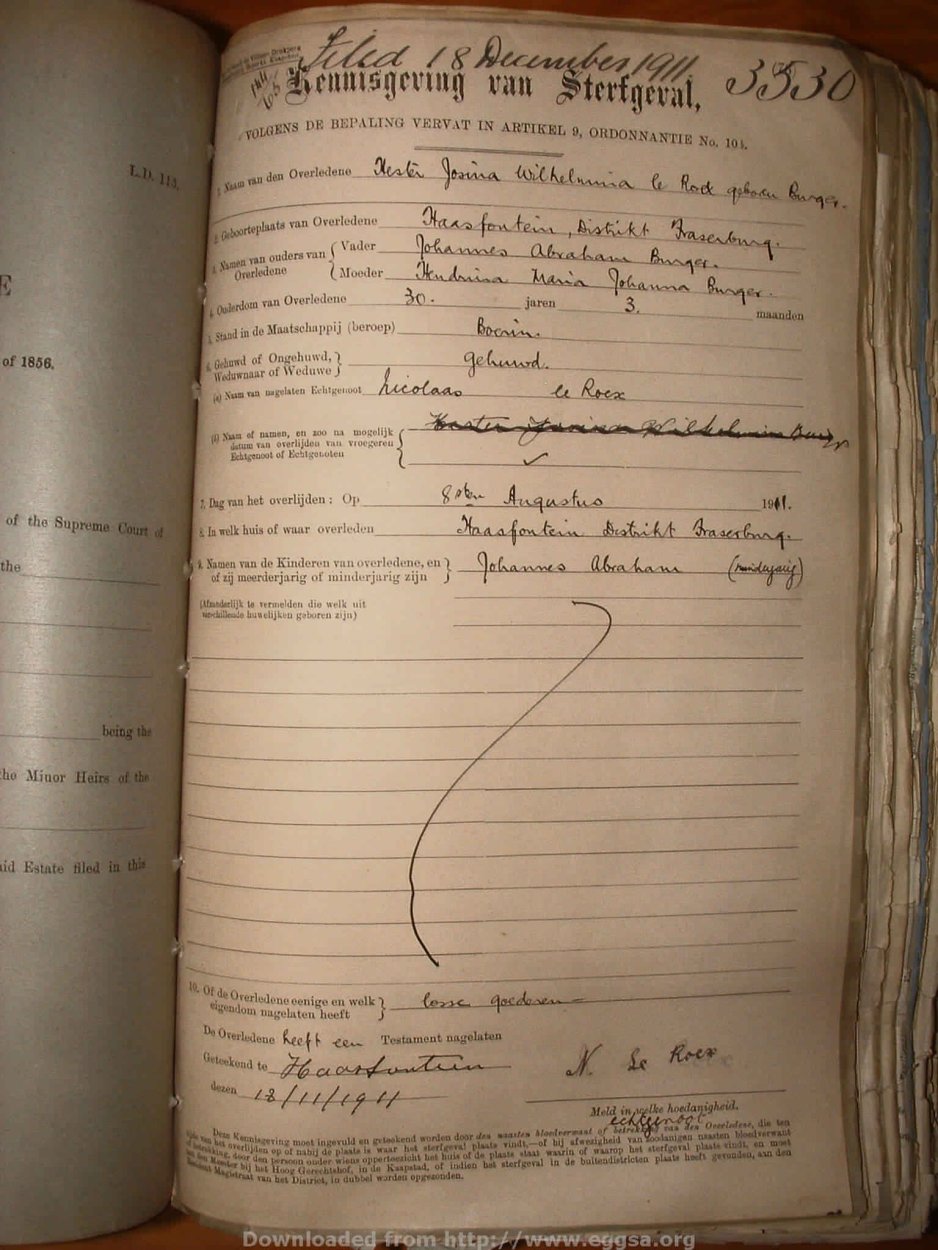 Filed 18 December 1911
3530
Kennisgeving van Sterfgeval,
VOLGENS DE BEPALING VERVAT IN ARTIKEL 9, ORDONNANTIE No. 104.
L.D. 113.
1. Naam van den Overledene Hester Josina Wilhelmina le Roex geboren Burger.
2. Geboorteplaats van Overledene Haasfontein, Distrikt Fraserburg.
3. Namen van ouders van Overledene { Vader Johannes Abraham Burger.
Moeder Hendrina Maria Johanna Burger.
4. Ouderdom van Overledene 30. jaren 3. maanden
5. Stand in de Maatschappij (beroep) Boerin.
6. Gehuwd of Ongehuwd, Weduwnaar of Weduwe } Gehuwd.
(a) Naam van nagelaten Echtgenoot Nicolaas le Roex
(b) Naam of namen, en zoo na mogelijk
datum van overlijden van vroegeren
Echtgenoot of Echtgenoten
Hester Josina Wilhelmina Burger
7. Dag van het overlijden: Op 8sten Augustus 1911.
8. In welk huis of waar overleden Haasfontein Distrikt Fraserburg.
9. Namen van de Kinderen van overledene, en
of zij meerderjarig of minderjarig zijn } Johannes Abraham (minderjarig)
(Afzonderlijk te vermelden die welk uit
verschillende huwelijken geboren zijn)
10. Of de Overledene eenige en welk
eigendom nagelaten heeft } losse goederen
De Overledene heeft een Testament nagelaten
Geteekend te Haasfontein
N. Le Roex
dezen 18/11/1911
Meld in welke hoedanigheid.
echtgenoot
Deze Kennisgeving moet ingevuld en geteekend worden door den naasten bloedverwant of betrekking van den Overledene, die ten
tijde van het overlijden op of nabij de plaats is waar het sterfgeval plaats vindt,—of bij afwezigheid van zoodanigen naasten bloedverwant
of betrekking, door den persoon onder wiens oppertoezicht het huis of de plaats staat waarin of waarop het sterfgeval plaats vindt, en moet
aan den Meester bij het Hoog Gerechtshof, in de Kaapstad, of indien het sterfgeval in de buitendistricten plaats heeft gevonden, aan den
Resident Magistraat van het District, in dubbel worden opgezonden.
E
of 1856.
of the Supreme Court of
the
being the
the Minor Heirs of the
aid Estate filed in this
Downloaded from http://www.eggsa.org